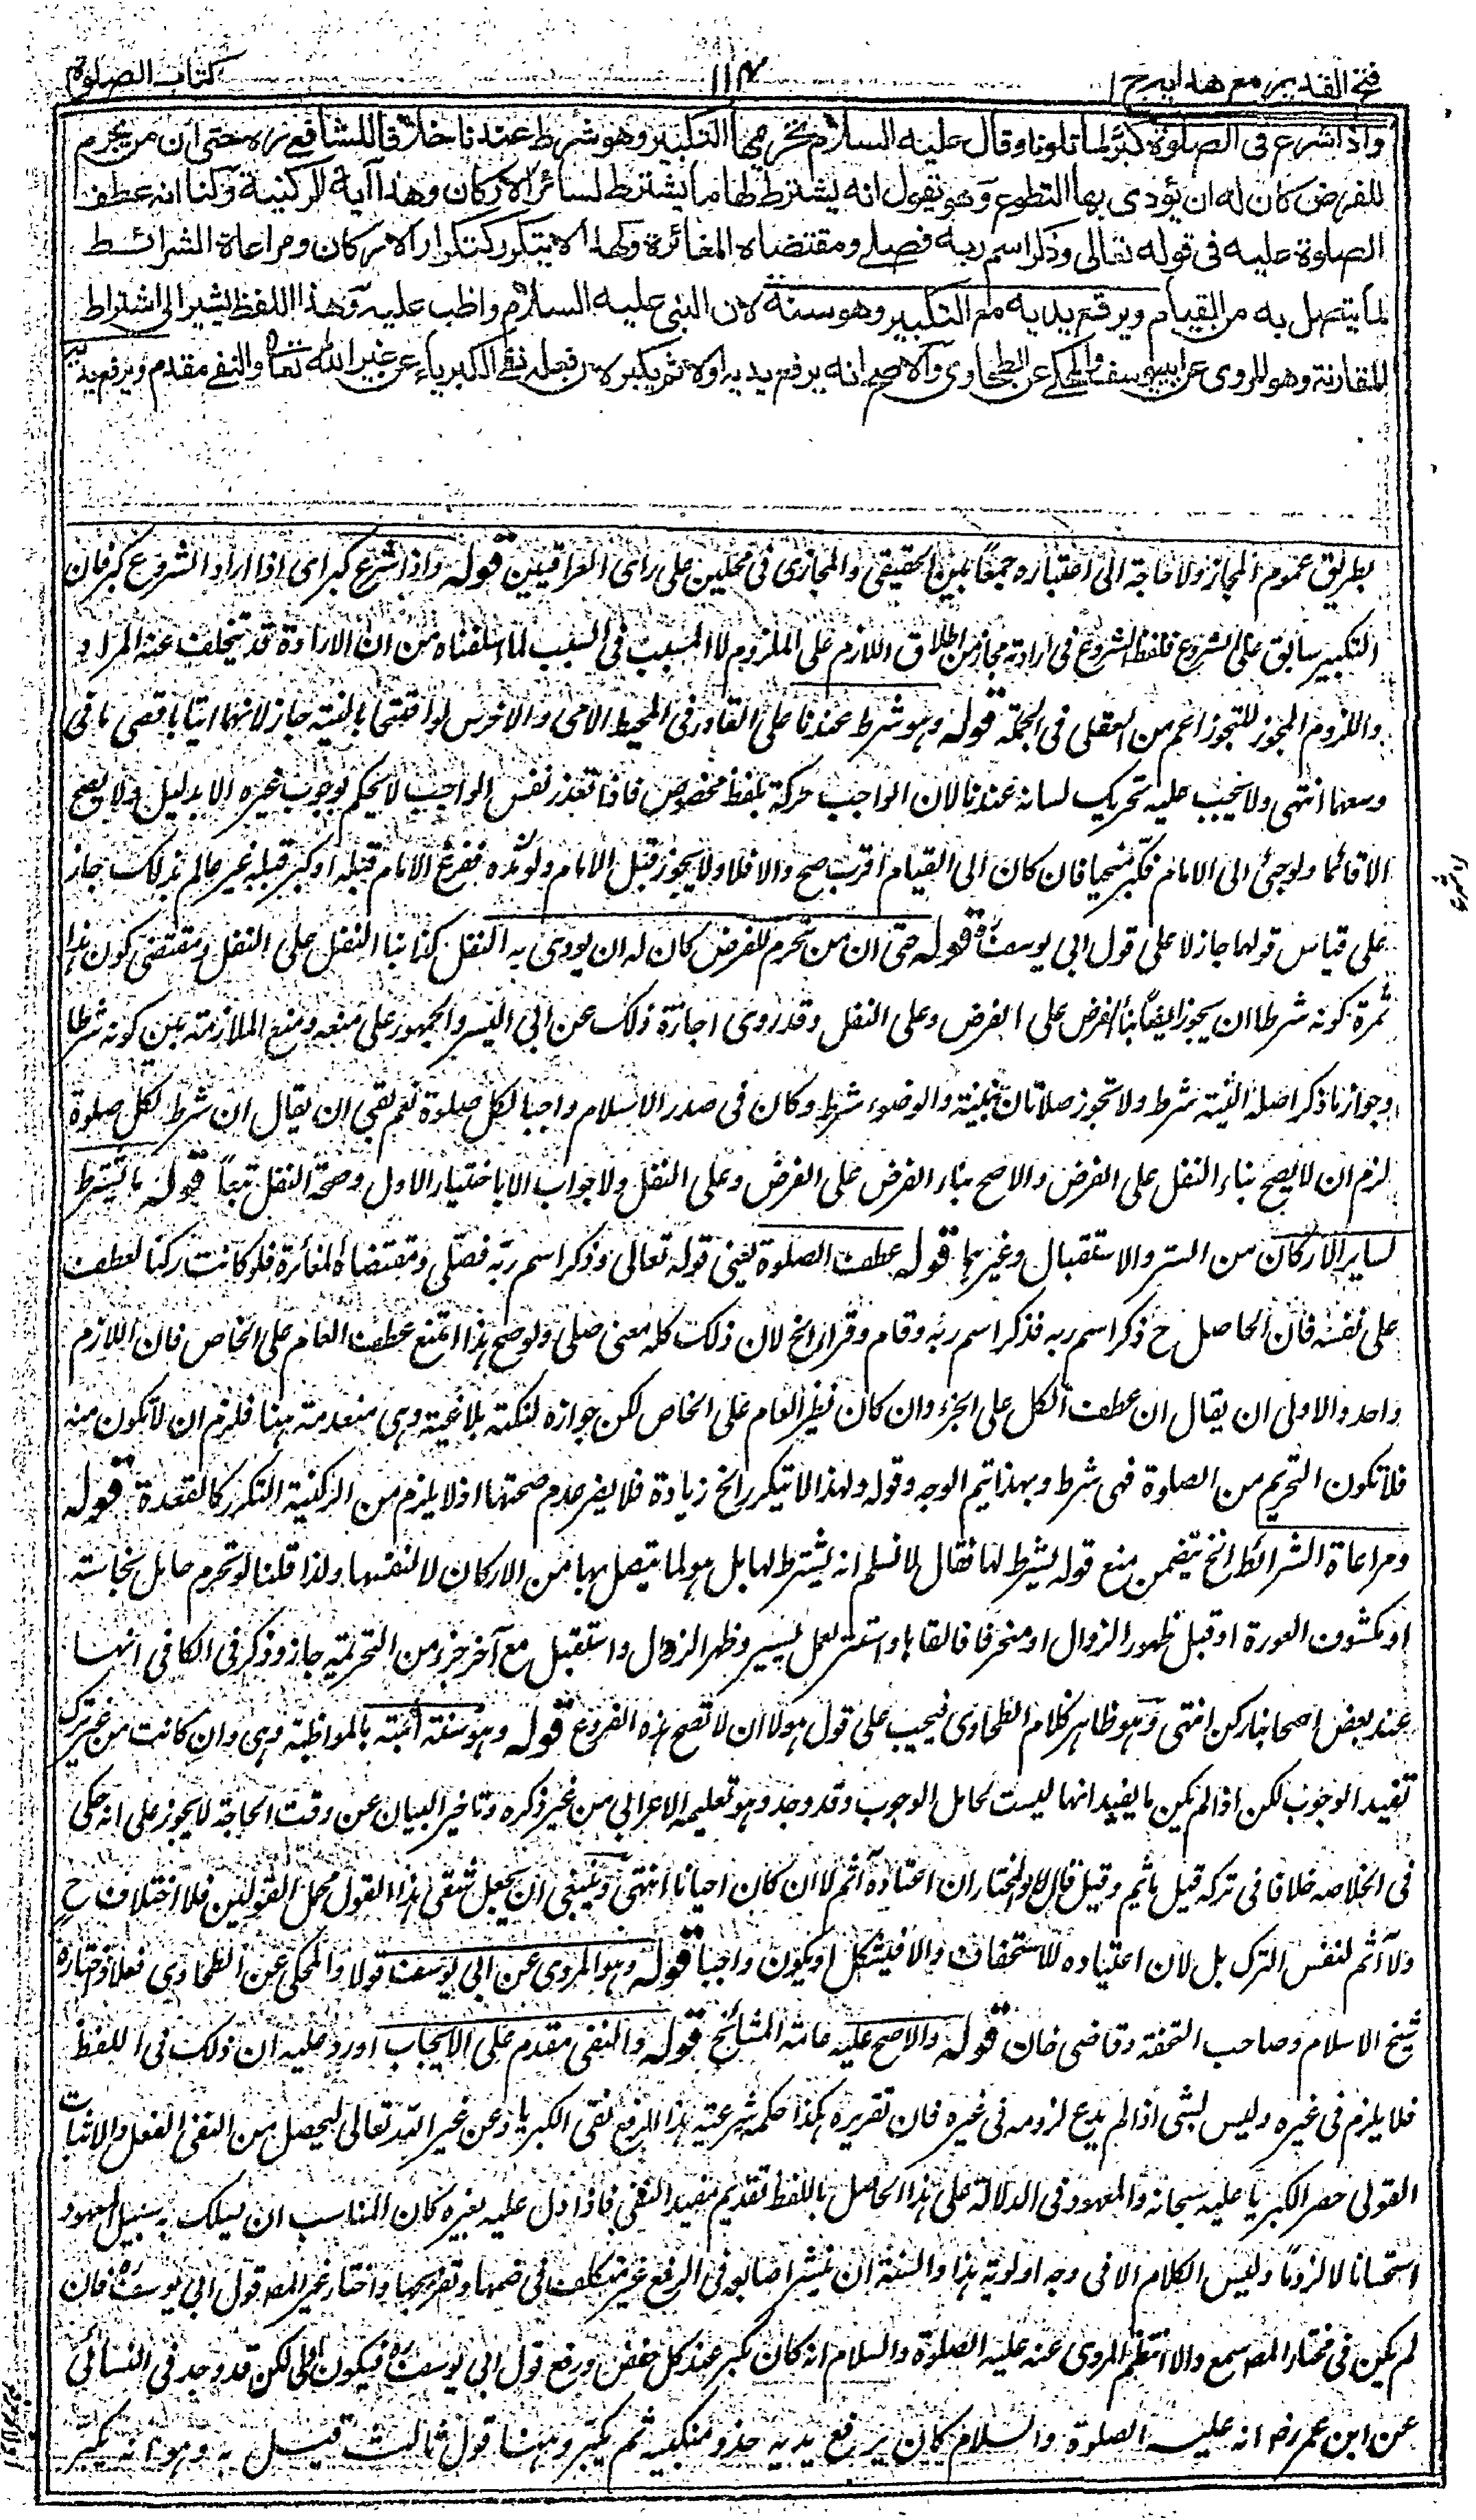 فتح القدير مع هدايه ج ١
١١٣
كتاب الصلوة
واذا شرع فى الصلوة كبر لما تلونا وقال عليه السلام تحريمها التكبير وهو شرط عندنا خلافا للشافعي ره حتى ان من يحرم
للفرض كان له ان يؤدى بها التطوع وهو يقول انه يشترط لها ما يشترط لسائر الاركان وهذا آية الركنية ولنا انه عطف
الصلوة عليه فى قوله تعالى وذكر اسم ربه فصلى ومقتضاه المغائرة ولهذا لا يتكرر كتكرار الاركان ومراعاة الشرائط
لما يتصل به من القيام ويرفع يديه مع التكبير وهو سنة لان النبى عليه السلام واظب عليه وهذا اللفظ يشير الى اشتراط
المقارنة وهو المروى عن ابى يوسف والمحكى عن الطحاوى والاصح انه يرفع يديه اولا ثم يكبر لان فعله نفى الكبرياء عن غير الله تعالى والنفى مقدم ويرفع يديه
بطريق عموم المجاز ولا حاجة الى اعتباره جمعاً بين الحقيقى والمجازى فى محلين على راى العراقيين قوله واذا شرع كبر اى اذا اراد الشروع كبر فان
التكبير سابق على الشروع فلفظ الشروع فى ارادته مجاز من اطلاق اللازم على الملزوم لا المسبب فى السبب لما اسلفناه من ان الارادة قد يتخلف عنه المراد
واللزوم المجوز للتجوز اعم من العقلى فى الجملة قوله وهو شرط عندنا على القادر فى المحيط الامى والاخرس لو افتتحا بالنية جاز لانهما اتيا باقصى ما فى
وسعهما انتهى ولا يجب عليه تحريك لسانه عندنا لان الواجب حركة بلفظ مخصوص فاذا تعذر نفس الواجب لا يحكم بوجوب غيره الا بدليل ولا يصح
الا قائما ولو جىٔ الى الامام فكبر منحنيا فان كان الى القيام اقرب صح والا فلا ولا يجوز قبل الامام ولو مده ففرغ الامام قبله او كبر قبله غير عالم بذلك جاز
على قياس قولهما جاز لا على قول ابى يوسف قوله حتى ان من تحرم للفرض كان له ان يودى به النفل كذا بنا النفل على النفل ومقتضى كون هذا
ثمرة كونه شرطا ان يجوز ايضاً بنا الفرض على الفرض وعلى النفل وقد روى اجازة ذلك عن ابى اليسر والجمهور على منعه ومنع الملازمة بين كونه شرطا
وجواز ما ذكر اصله النية شرط ولا تجوز صلاتان بنية والوضوء شرط وكان فى صدر الاسلام واجبا لكل صلوة نعم بقى ان يقال ان شرط لكل صلوة
لزم ان لا يصح بناء النفل على الفرض والا صح بناء الفرض على الفرض وعلى النفل ولا جواب الا باختيار الاول وصحة النفل تبعاً قوله ما يشترط
لساير الاركان من الستر والاستقبال وغيرها قوله عطف الصلوة يعنى قوله تعالى وذكر اسم ربه فصلى ومقتضاه المغائرة فلو كانت ركنا لعطف
على نفسه فان الحاصل ح ذكر اسم ربه فذكر اسم ربه وقام وقرا الخ لان ذلك كله معنى صلى ولو صح هذا امتنع عطف العام على الخاص فان اللازم
واحد والاولى ان يقال ان عطف الكل على الجزء وان كان نظير العام على الخاص لكن جوازه لنكتة بلاغية وهى منعدمة هنا فلزم ان لا تكون منه
فلا تكون التحريم من الصلوة فهى شرط وبهذا يتم الوجه وقوله ولهذا لا يتكرر الخ زيادة فلا يضر عدم صحتها اذ لا يلزم من الركنية التكرر كالقعدة قوله
ومراعاة الشرائط الخ يتضمن منع قوله يشترط لها فقال لا نسلم انه يشترط لها بل هو لما يتصل بها من الاركان لا لنفسها ولذا قلنا لو تحرم حامل نجاسة
او مكشوف العورة او قبل ظهور الزوال او منحرفا فالقاها واستتر بعمل يسير وظهر الزوال واستقبل مع آخر جزء من التحريمة جاز وذكر فى الكافى انها
عند بعض اصحابنا ركن انتهى وهو ظاهر كلام الطحاوى فيجب على قول هولاء ان لا تصح هذه الفروع قوله وهو سنة اثبته بالمواظبة وهى وان كانت من غير ترك
تفيد الوجوب لكن اذا لم يكن ما يفيد انها ليست لحامل الوجوب وقد وجد وهو تعليمه الاعرابى من غير ذكره وتاخير البيان عن وقت الحاجة لا يجوز على انه حكى
فى الخلاصة خلافا فى تركه قيل ياثم وقيل قال لا والمختار ان اعتاده آثم لا ان كان احيانا انتهى وينبغى ان يجعل شقى هذا القول محمل القولين فلا اختلاف ح
ولا اثم لنفس الترك بل لان اعتياده للاستخفاف والا فيشكل او يكون واجبا قوله وهو المروى عن ابى يوسف قولا والمحكى عن الطحاوى فعلا واختاره
شيخ الاسلام وصاحب التحفة وقاضى خان قوله والاصح عليه عامة المشائخ قوله والنفى مقدم على الايجاب اورد عليه ان ذلك فى اللفظ
فلا يلزم فى غيره وليس لشى اذ لم يدع لزومه فى غيره فان تقريره هكذا حكمة شرعية هذا الرفع نفى الكبرياء عن غير الله تعالى ليحصل من النفى الفعلى والاثبات
القولى حصر الكبريا عليه سبحانه والمعهود فى الدلالة على هذا الحاصل باللفظ تقديم مفيد النفى فاذا دل عليه بغيره كان المناسب ان يسلك به سبيل المعهود
استحسانا لا لزوماً وليس الكلام الا فى وجه اولوية هذا والسنة ان ينشر اصابعه فى الرفع غير متكلف فى ضمها وتفريجها واختار غير المصـ قول ابى يوسف فان
لم يكن فى مختار المصـ سمع والا انتظم المروى عنه عليه الصلوة والسلام انه كان يكبر عند كل خفض ورفع قول ابى يوسف ره فيكون اولى لكن قد وجد فى النسائى
عن ابن عمر رضـ انه عليه الصلوة والسلام كان يرفع يديه حذو منكبيه ثم يكبر وهنا قول ثالث قيل به وهو انه يكبر